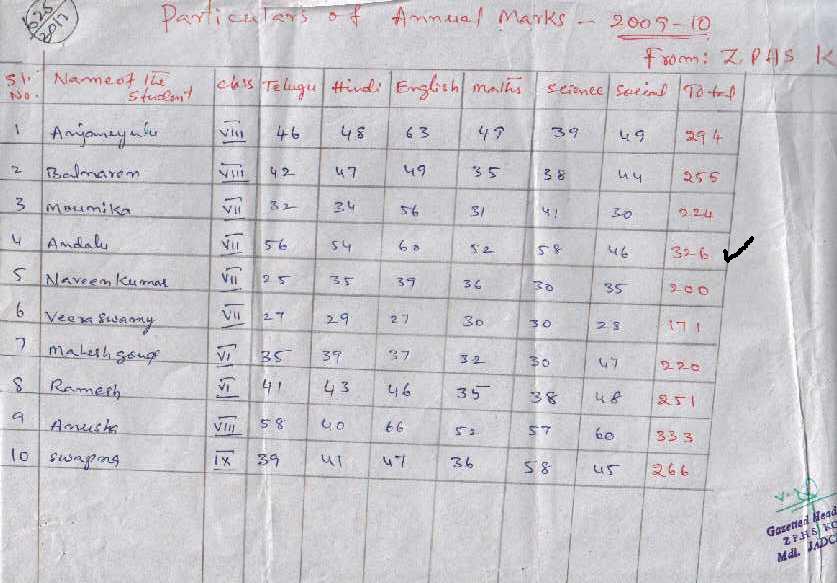 625
2017
Particulars of Annual Marks - 2009-10
From: ZPHS K
S.l. No. Name of the Student class Telugu Hindi English maths science Social Total
1 Anjaneyulu VIII 46 48 63 49 39 49 294
2 Balnaren VIII 42 47 49 35 38 44 255
3 Mounika VII 32 34 56 31 41 30 224
4 Andalu VII 56 54 60 52 58 46 326
5 Naveen Kumar VII 25 35 39 36 30 35 200
6 Veeraswamy VII 27 29 27 30 30 28 171
7 Mahesh goud VI 35 39 37 32 30 47 220
8 Ramesh VI 41 43 46 35 38 48 251
9 Anusha VIII 58 40 66 52 57 60 333
10 Swapna IX 39 41 47 36 58 45 266
Gazetted Head
Z.P.H.S. KO
Mdl. JADC